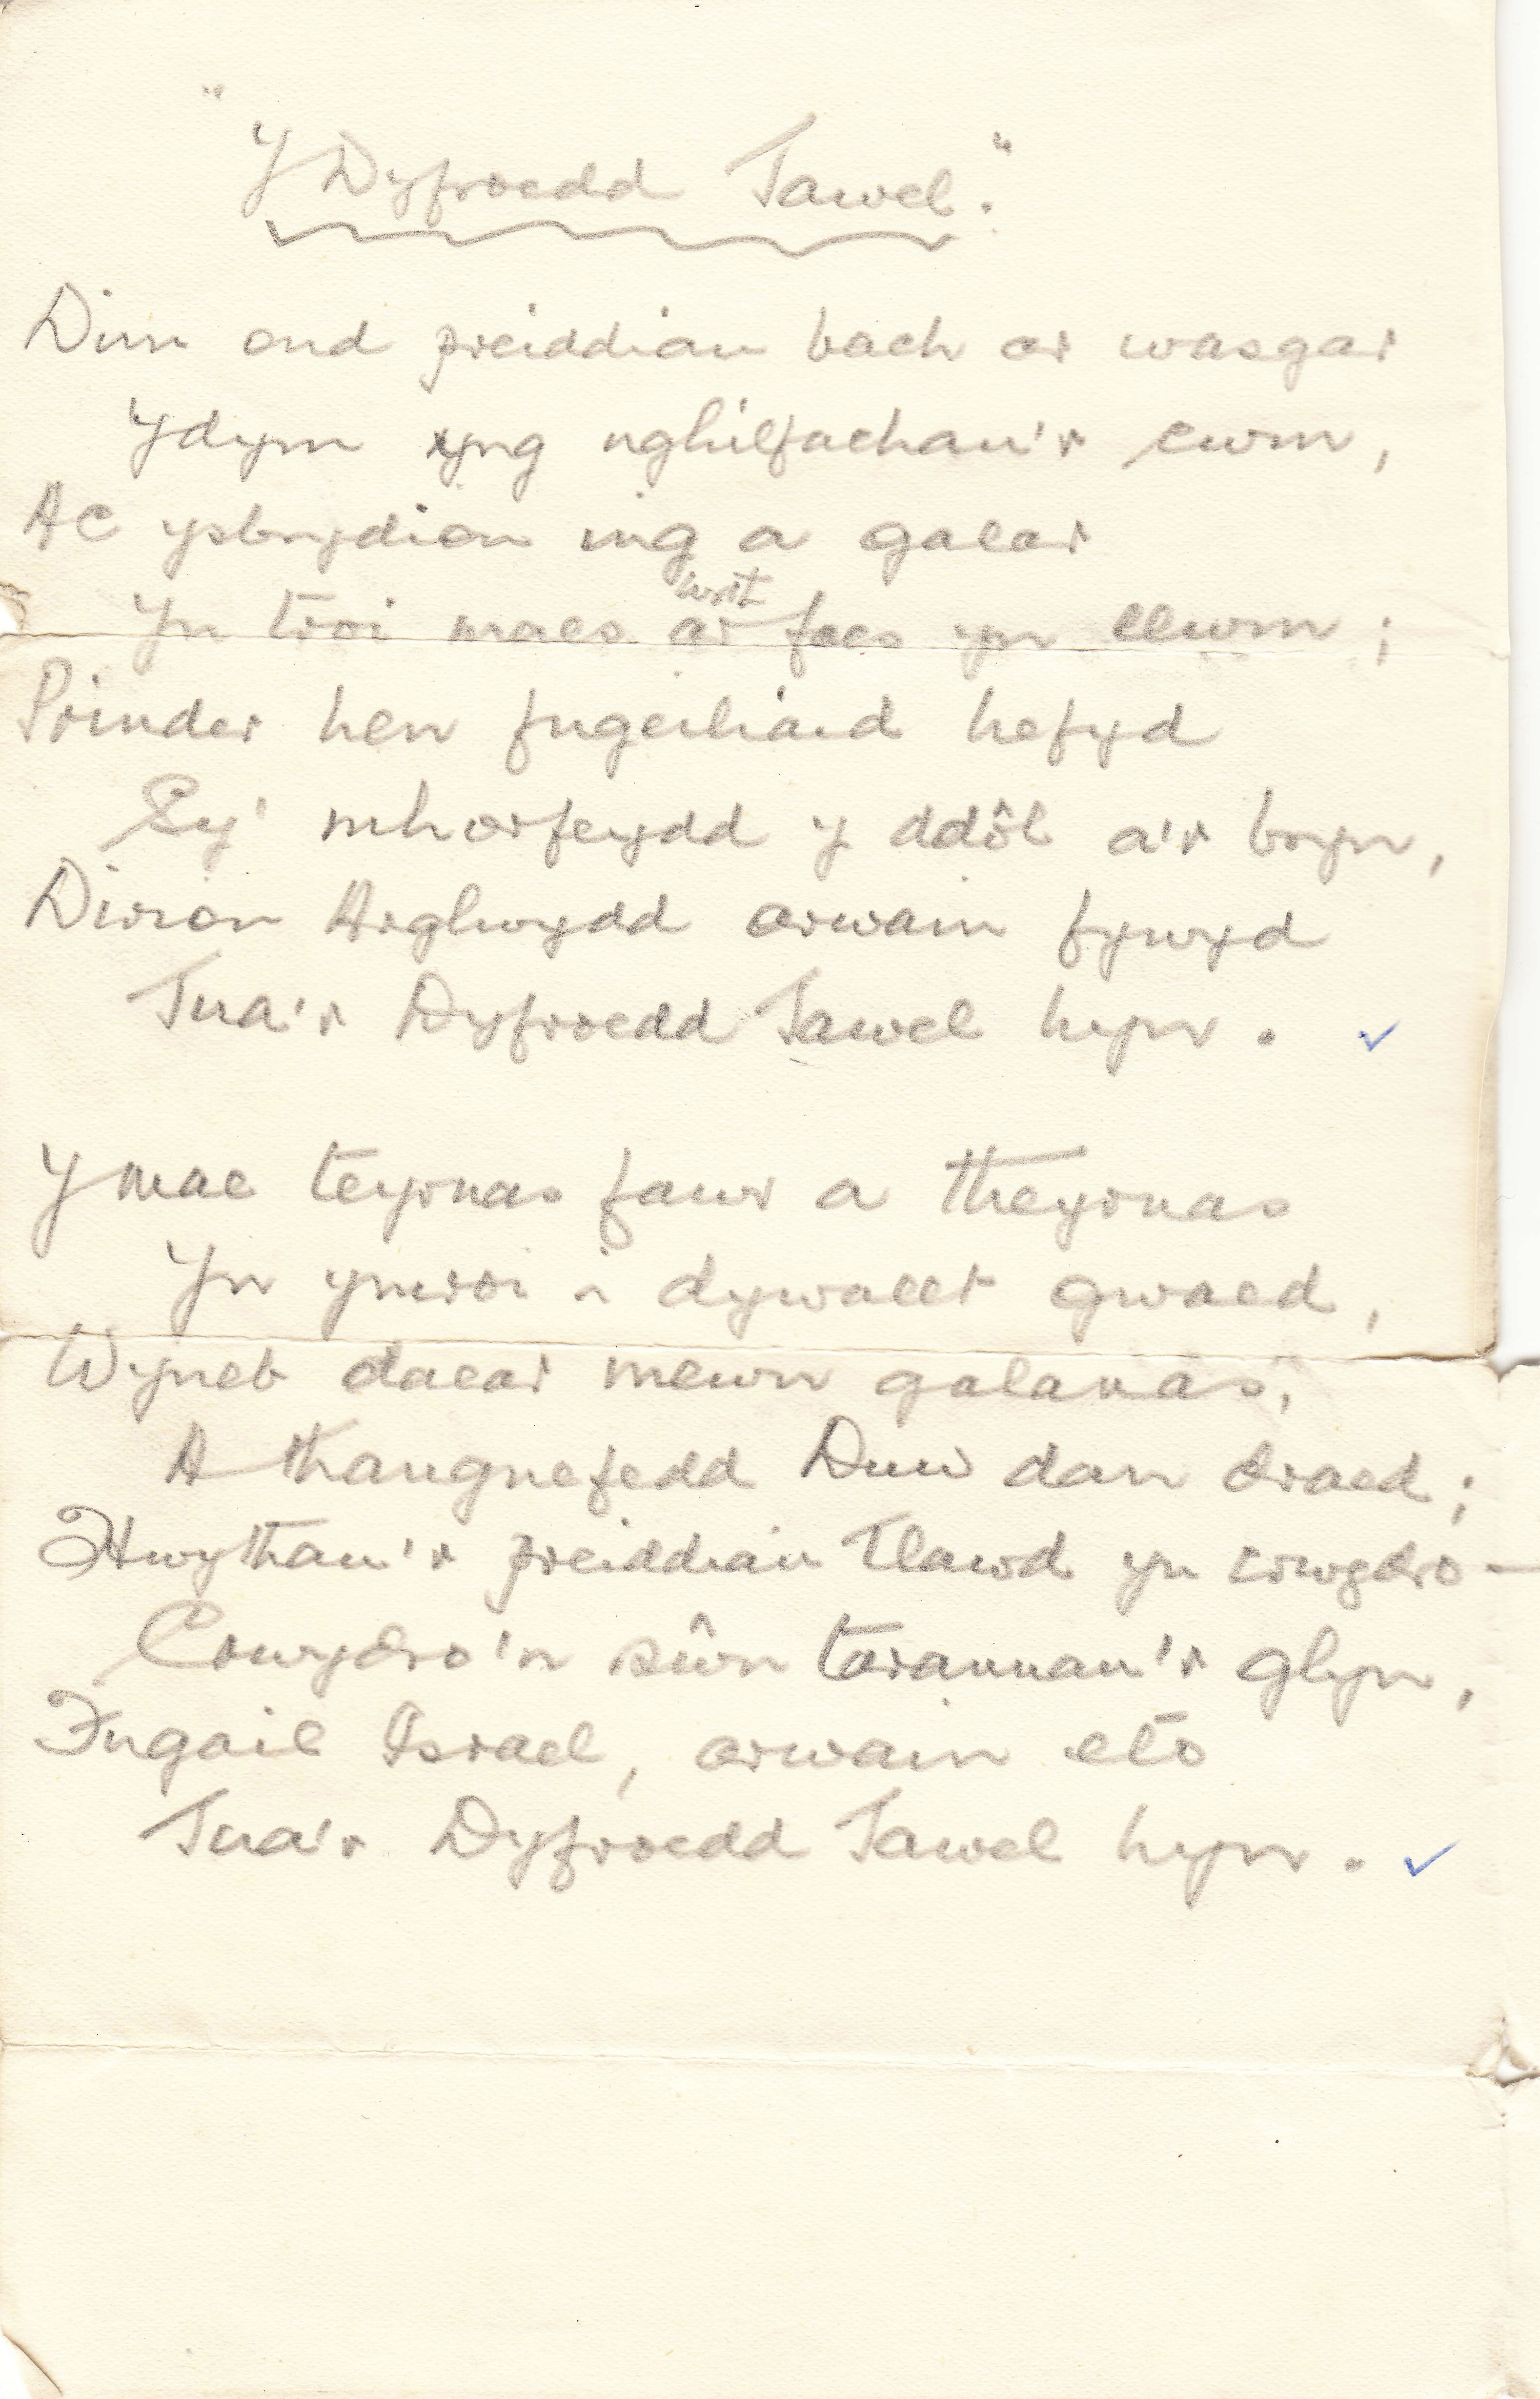 "Y Dyfroedd Tawel."
Dim ond preiddiau bach ar wasgar
Ydym yng nghilfachau'r cwm,
Ac ysbrydion ing a galar
wrt
Yn troi maes ar faes yn llwm;
Prinder hen fugeiliaid hefyd
Sy' mhorfeydd y ddôl a'r bryn,
Dirion Arglwydd arwain fywyd
Tua'r Dyfroedd Tawel hyn.
Y mae teyrnas fawr a theyrnas
Yn ymroi i dywallt gwaed,
Wyneb daear mewn galanas,
A thangnefedd Duw dan draed;
Hwythau'r preiddiau tlawd yn crwydro —
Crwydro'n sŵn taranau'r glyn,
Fugail Israel, arwain eto
Tua'r Dyfroedd Tawel hyn.